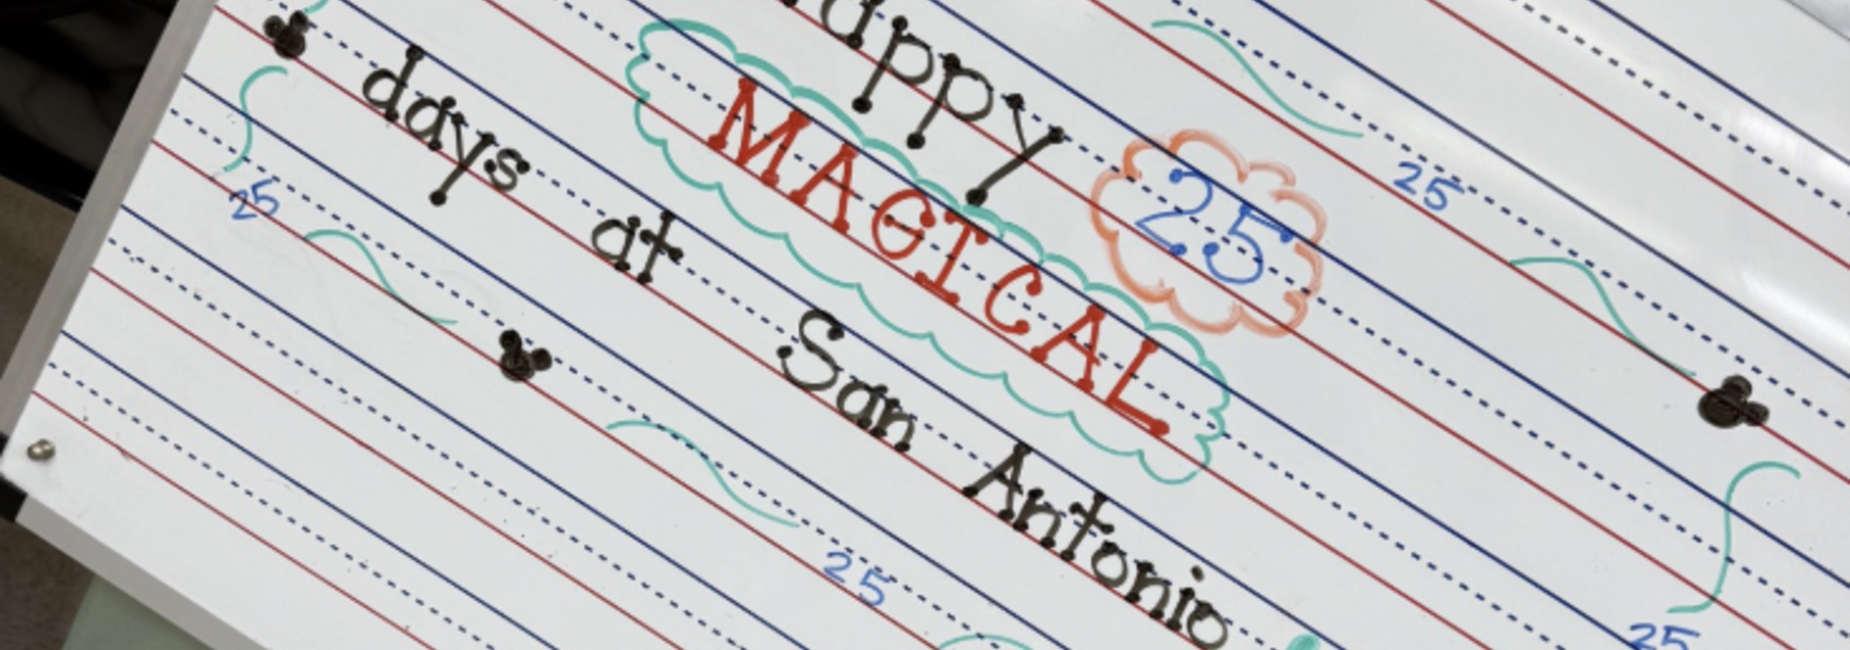 25
appy 25
MAGICAL
days at San Antonio
25
25
25